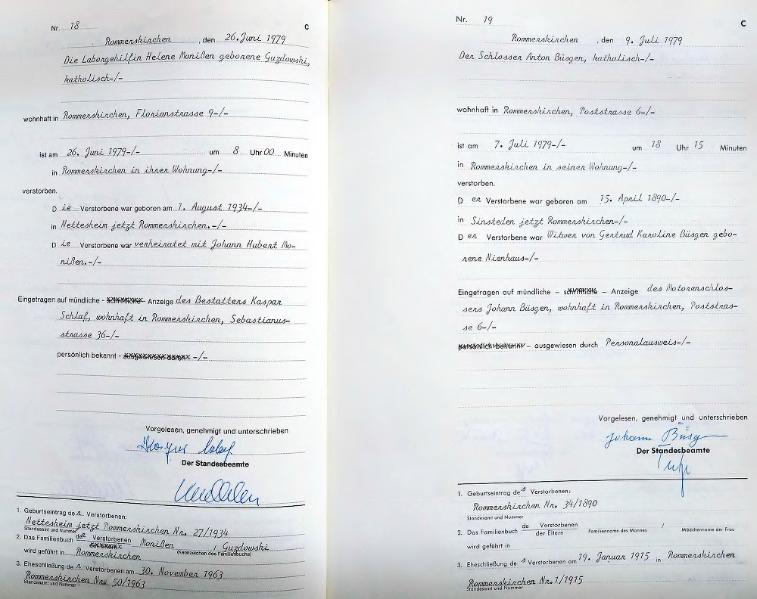 Nr. 18 C
Rommerskirchen, den 26. Juni 1979
Die Laborgehilfin Helene Monißen geborene Guzdowski,
katholisch-/-
wohnhaft in Rommerskirchen, Florianstrasse 9-/-
ist am 26. Juni 1979-/- um 8 Uhr 00 Minuten
in Rommerskirchen in ihrer Wohnung-/-
verstorben.
Die Verstorbene war geboren am 1. August 1934-/-
in Nettesheim jetzt Rommerskirchen.-/-
Die Verstorbene war verheiratet mit Johann Hubert Mo-
nißen.-/-
Eingetragen auf mündliche - Anzeige des Bestatters Kaspar
Schlaf, wohnhaft in Rommerskirchen, Sebastianus-
strasse 36-/-
persönlich bekannt - -/-
Vorgelesen, genehmigt und unterschrieben
Der Standesbeamte
1. Geburtseintrag de r Verstorbenen:
Nettesheim jetzt Rommerskirchen Nr. 27/1934
Standesamt und Nummer
2. Das Familienbuch der Verstorbenen Monißen / Guzdowski
wird geführt in Rommerskirchen
3. Eheschließung de r Verstorbenen am 30. November 1963
Rommerskirchen Nr. 50/1963
Standesamt und Nummer
Nr. 19 C
Rommerskirchen, den 9. Juli 1979
Der Schlosser Anton Büsgen, katholisch-/-
wohnhaft in Rommerskirchen, Poststrasse 6-/-
ist am 7. Juli 1979-/- um 18 Uhr 15 Minuten
in Rommerskirchen in seiner Wohnung-/-
verstorben.
Der Verstorbene war geboren am 15. April 1890-/-
in Sinsteden jetzt Rommerskirchen-/-
Der Verstorbene war Witwer von Gertrud Karoline Büsgen gebo-
rene Nienhaus-/-
Eingetragen auf mündliche - - Anzeige des Motorenschlos-
sers Johann Büsgen, wohnhaft in Rommerskirchen, Poststras-
se 6-/-
persönlich bekannt - ausgewiesen durch Personalausweis-/-
Vorgelesen, genehmigt und unterschrieben
Johann Büsg
Der Standesbeamte
1. Geburtseintrag des Verstorbenen:
Rommerskirchen Nr. 34/1890
Standesamt und Nummer
2. Das Familienbuch de Verstorbenen / der Eltern Familienname des Mannes / Mädchenname der Frau
wird geführt in
3. Eheschließung des Verstorbenen am 19. Januar 1915 in Rommerskirchen
Rommerskirchen Nr. 1/1915
Standesamt und Nummer